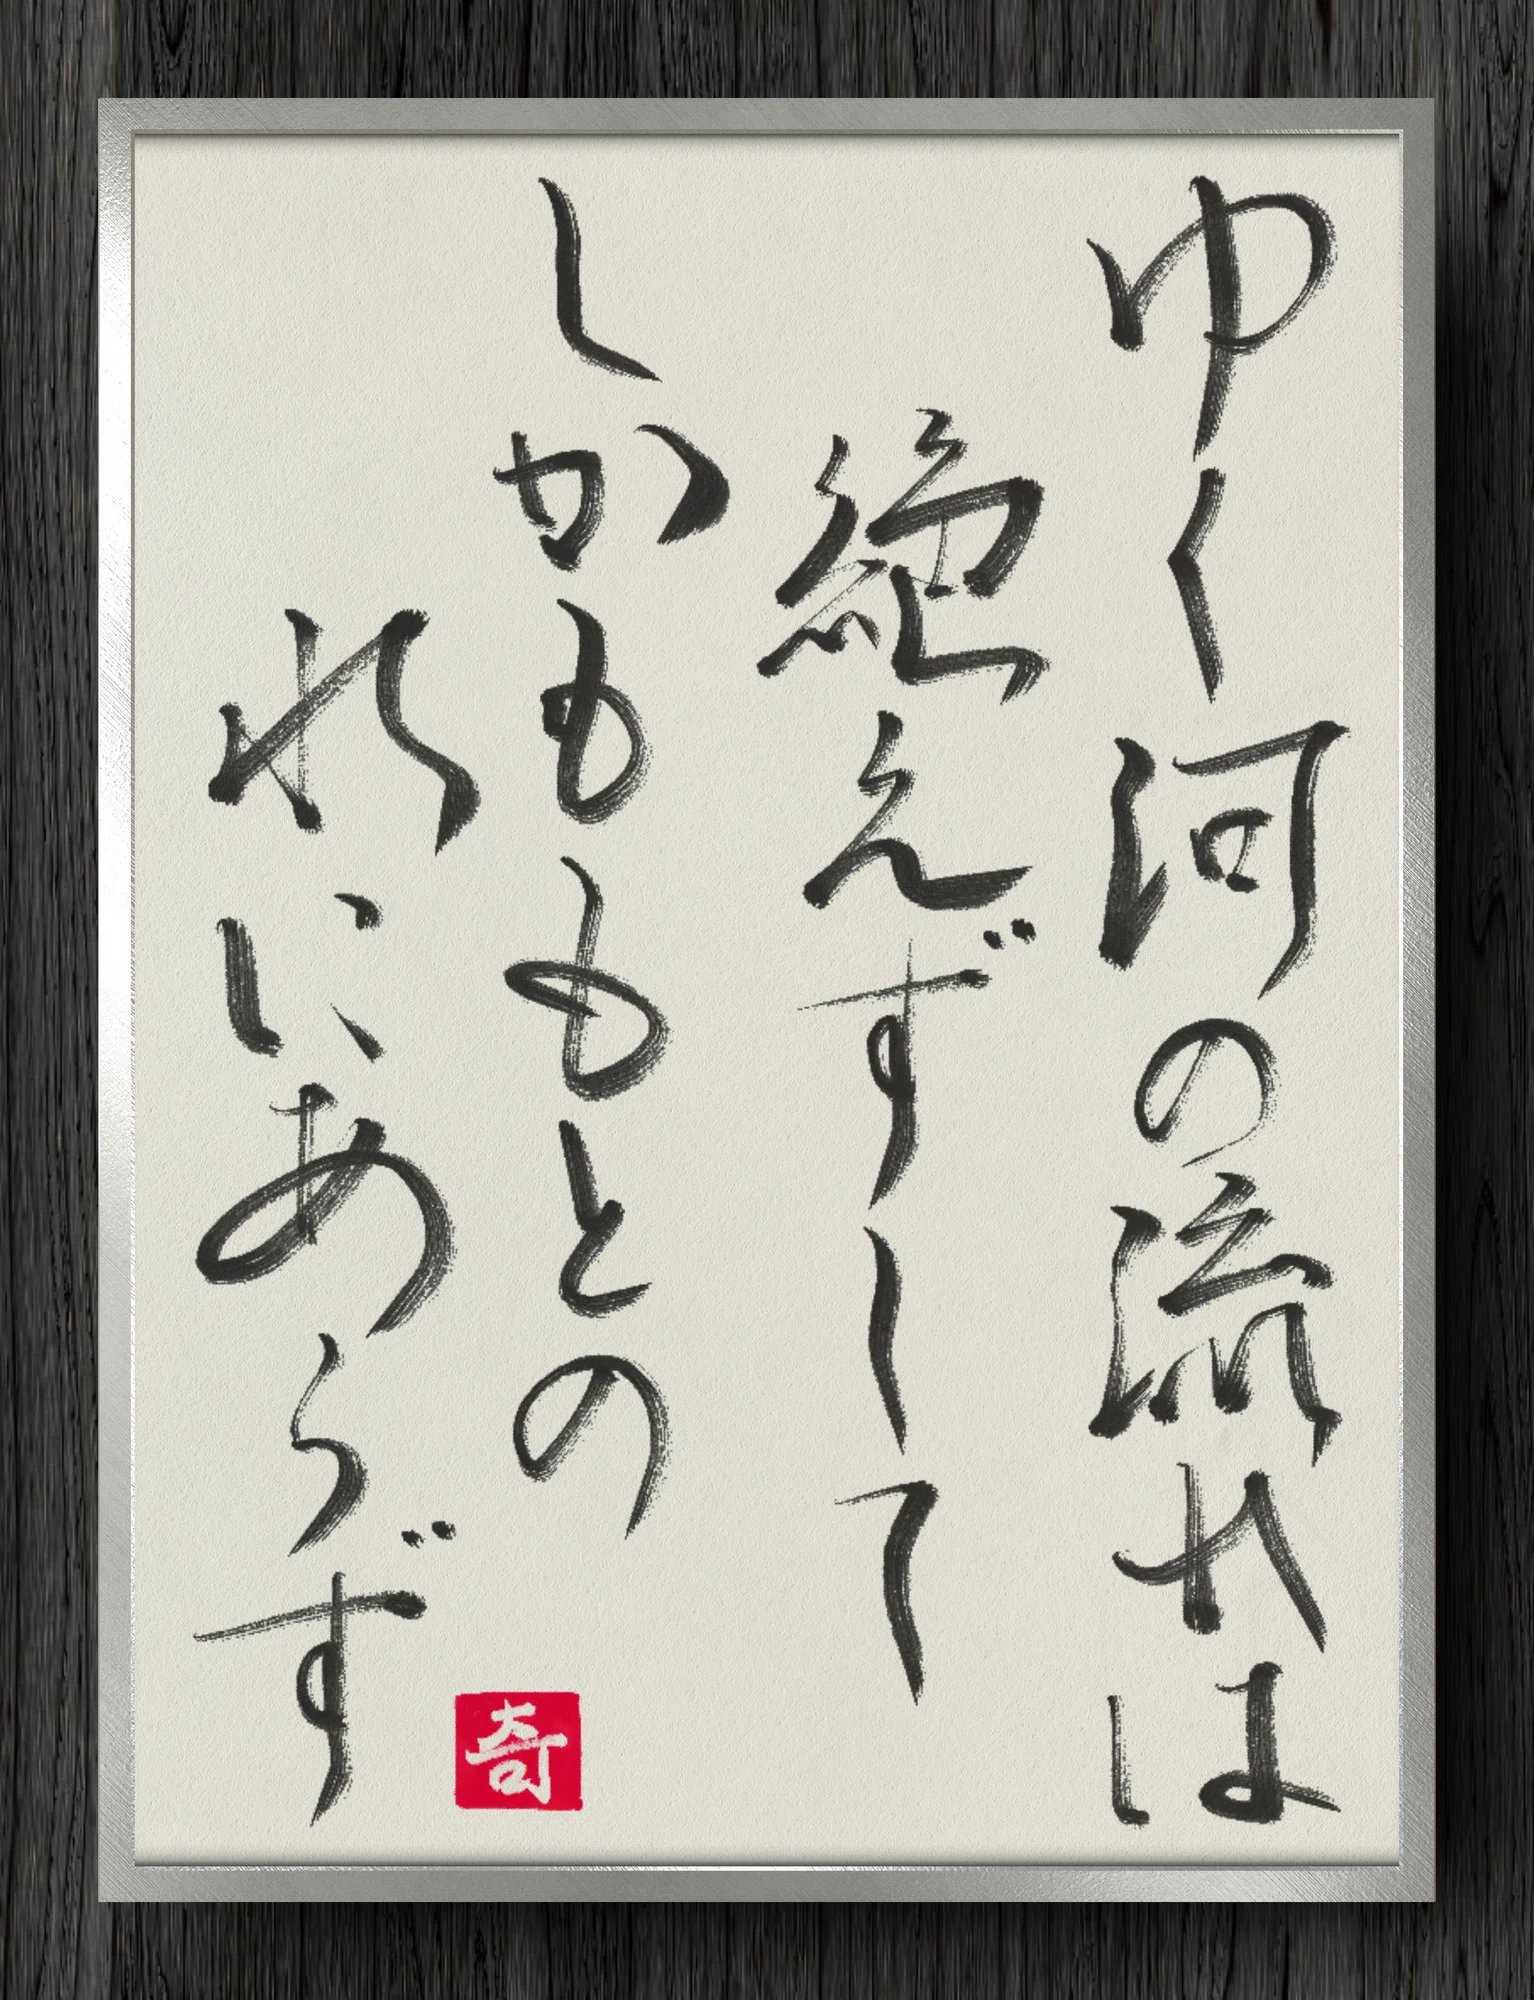 ゆく河の流れは
絶えずして
しかももとの
水にあらず
奇